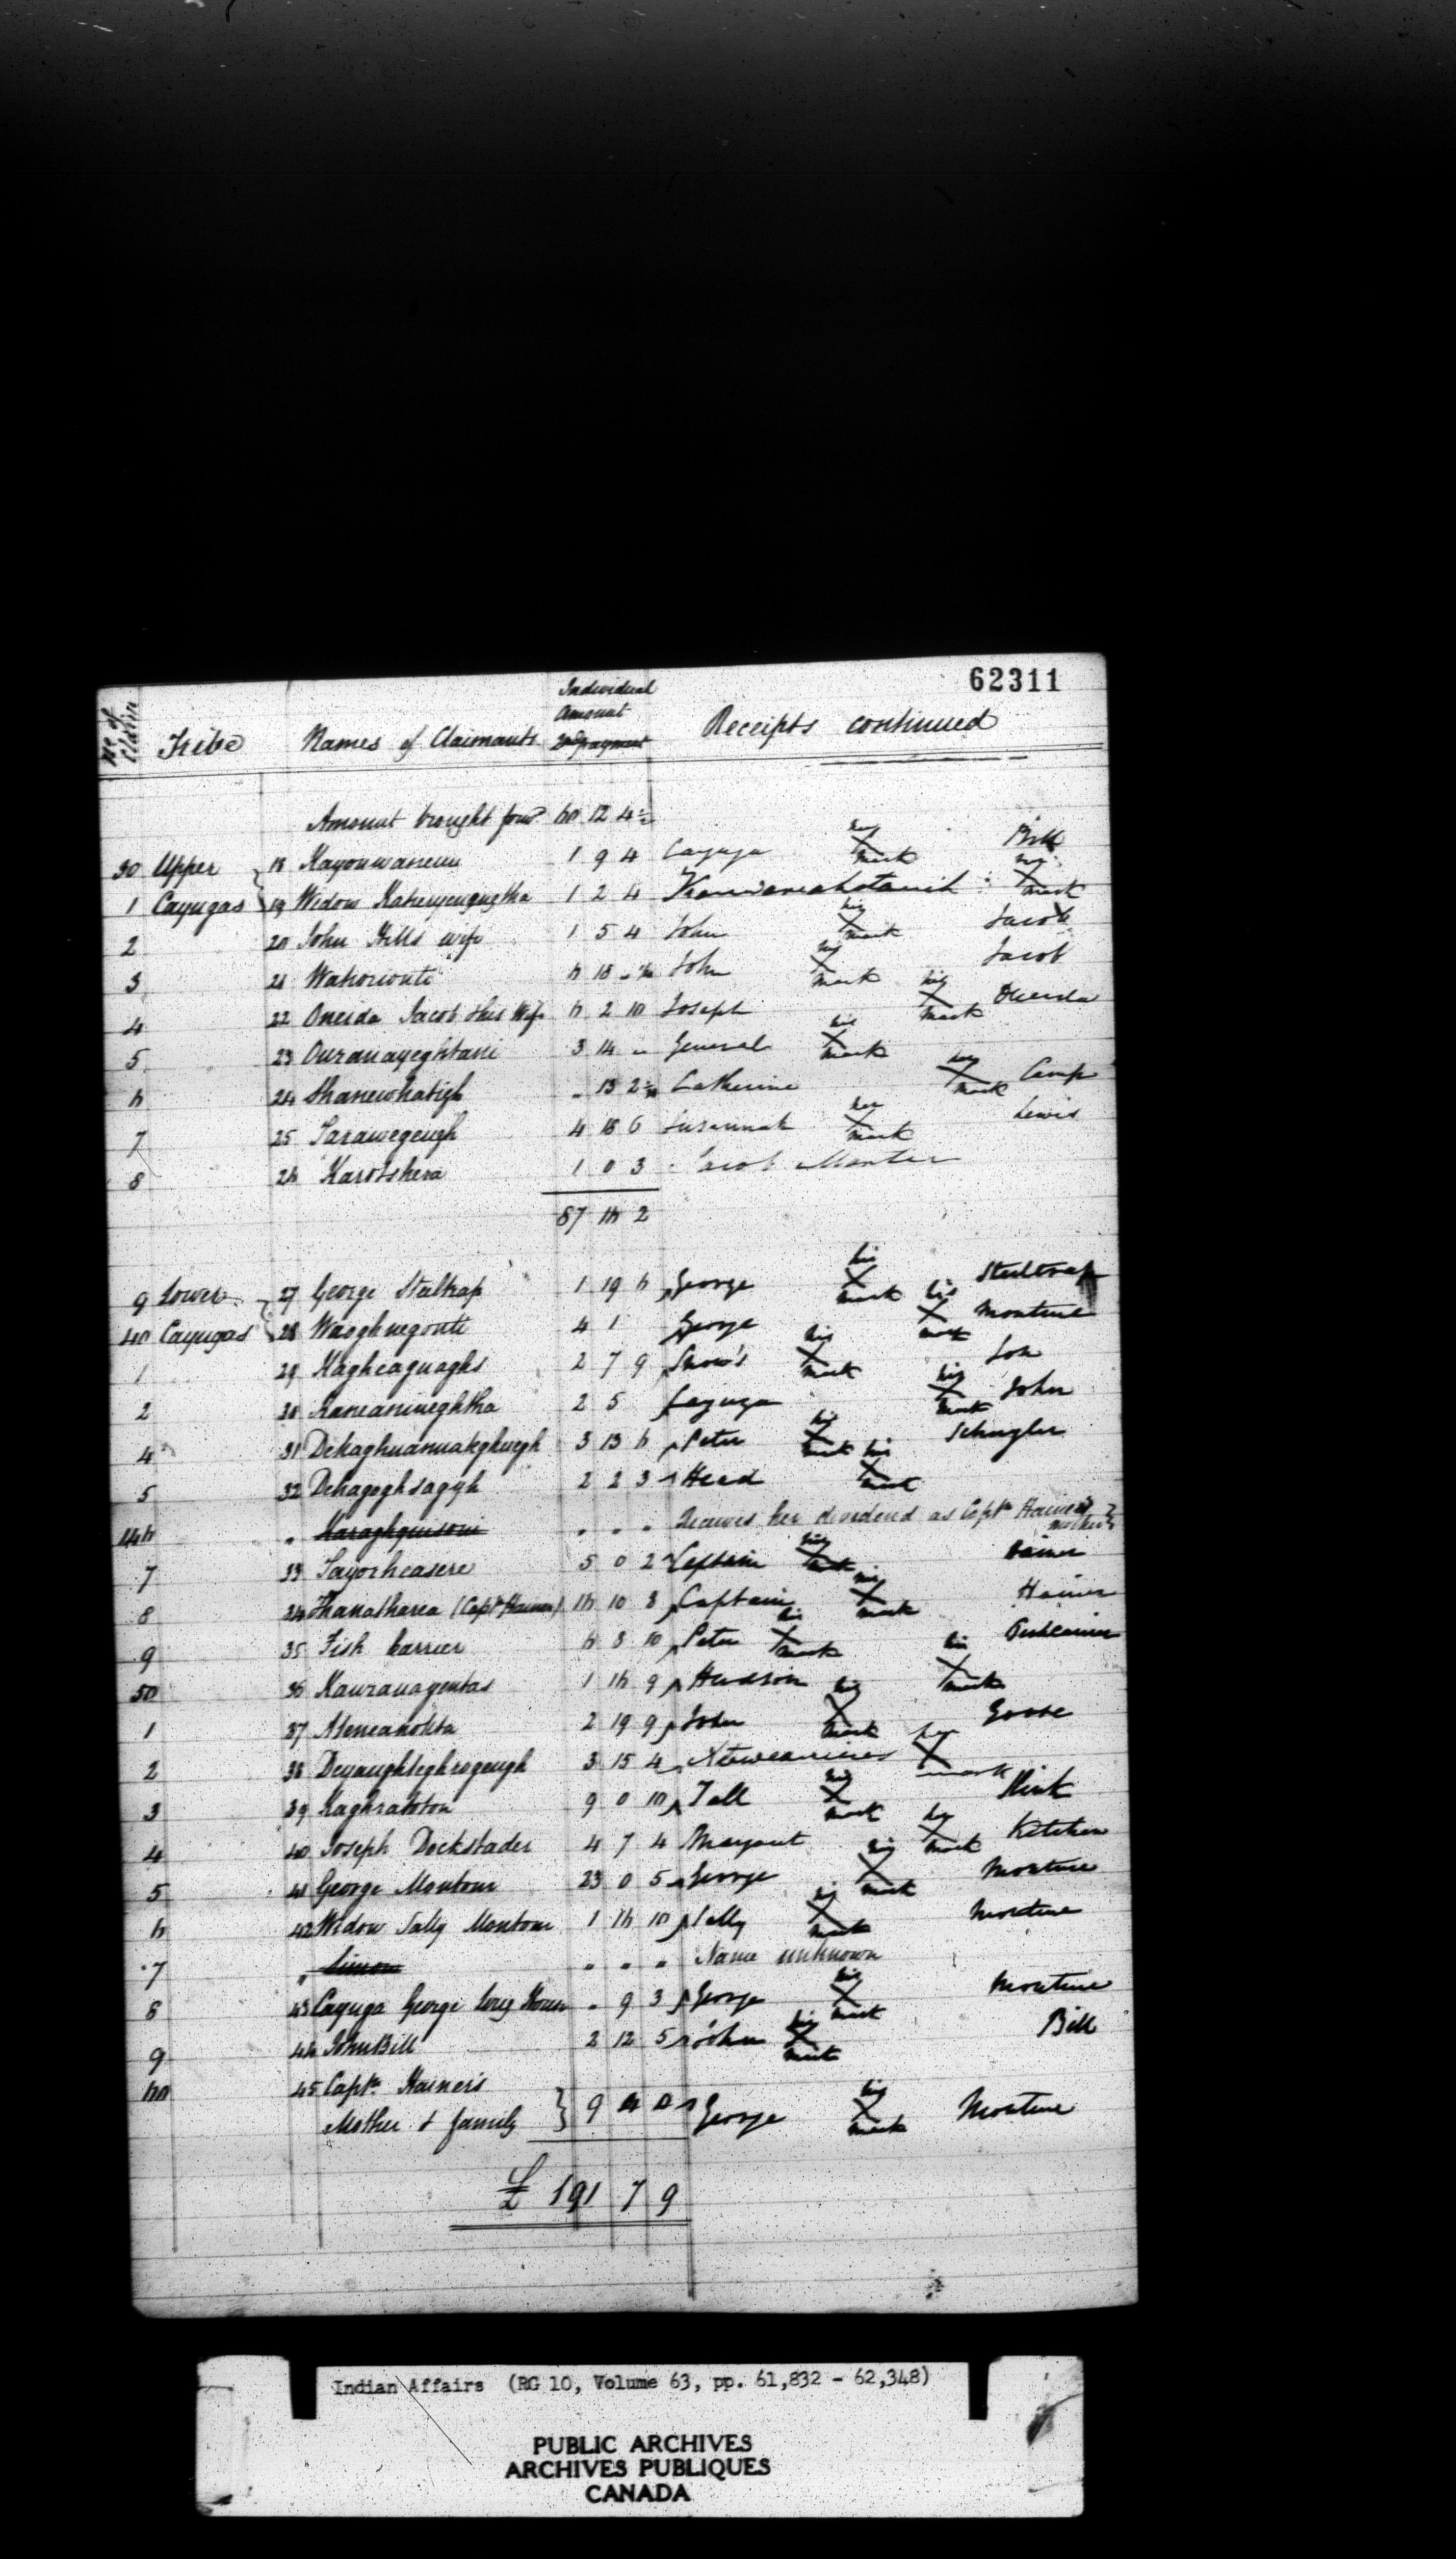 62311
No. of Claim Tribe Names of Claimants Individual Amount 2nd payment Receipts continued
Amount brought forwd. 60 12 4½
30 Upper 18 Kayouwaneuu 1 9 4 Cayuga his X mark Bill
1 Cayugas 19 Widow 1 2 4 his X mark
2 20 John Hills wife 1 5 4 John his X mark Jacob
3 21 Wahowonti 6 18 John his X mark Jacob
4 22 Oneida Jacob & his Wife 6 2 10 Joseph his X mark Oneida
5 23 Ouranayeghtani 3 14 " General his X mark
6 24 Shanewhatigh " 13 2½ Catherine her X mark Camp
7 25 Sarawegeugh 4 18 6 Susannah her X mark Lewis
8 26 Karotshera 1 0 3 Jacob
87 16 2
9 Lower 27 George Steeltrap 1 19 6 George his X mark Steeltrap
40 Cayugas 28 Waoghnegonti 4 1 George his X mark Monture
1 29 Kagheaguaghs 2 7 9 Snow's his X mark Son
2 30 2 5 Cayuga his X mark John
4 31 3 13 6 Peter his X mark Schuyler
5 32 Dehagoghsagigh 2 2 3 Head his X mark
146 " " " " Receives her dividend as Captn Hainer's mother
7 33 Sayorheasere 5 0 2 Captain his X mark Hainer
8 34 Thanatharea (Captn Hainer) 16 10 8 Captain his X mark Hainer
9 35 Fish Carrier 6 8 10 Peter his X mark
50 36 Kauranagentas 1 16 9 Hudson his X mark
1 37 2 19 9 John his X mark Goose
2 38 Deyaughteghrogeugh 3 15 4 her X mark
3 39 Kaghratoton 9 0 10 Tall his X mark Mink
4 40 Joseph Dockstader 4 7 4 Margaret her X mark Ketchen
5 41 George Montour 23 0 5 George his X mark Monture
6 42 Widow Sally Montour 1 16 10 Sally her X mark Monture
7 " Simon " " " Name unknown
8 43 Cayuga George Long House " 9 3 George his X mark Monture
9 44 John Bill 2 12 5 John his X mark Bill
60 45 Captn. Hainer's
Mother & family } 9 4 0 George his X mark Monture
£ 191 7 9
Indian Affairs (RG 10, Volume 63, pp. 61,832 - 62,348)
PUBLIC ARCHIVES
ARCHIVES PUBLIQUES
CANADA